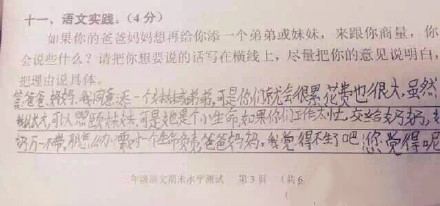 十一、语文实践。(4分)
如果你的爸爸妈妈想再给你添一个弟弟或妹妹,来跟你商量,你
会说些什么?请把你想要说的话写在横线上,尽量把你的意见说明白,
把理由说具体。
爸爸妈妈,我同意添一个妹妹弟弟,可是你们就会很累花费也很大,虽然
可是她是个小生命如果你们工作太忙,交给奶奶,
万一不带,那怎么办 要对一个生命负责爸爸妈妈。我觉得不生了吧 您觉得呢
年级语文期末水平测试 第3页 (共6